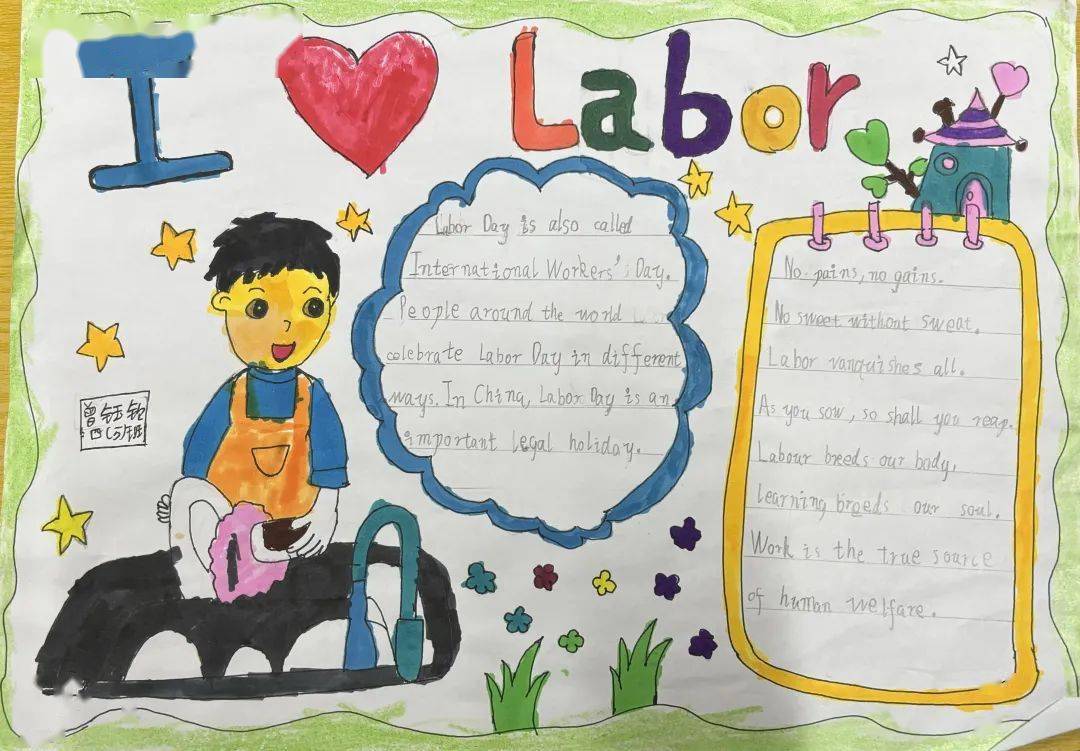 I Labor
Labor Day is also called
International Workers' Day.
People around the world
celebrate Labor Day in different
ways. In China, Labor Day is an
important legal holiday.
No pains, no gains.
No sweet without sweat.
Labor vanquishes all.
As you sow, so shall you reap.
Labour breeds our body,
learning breeds our soul.
Work is the true source
of human welfare.
曾钰
四(5)班